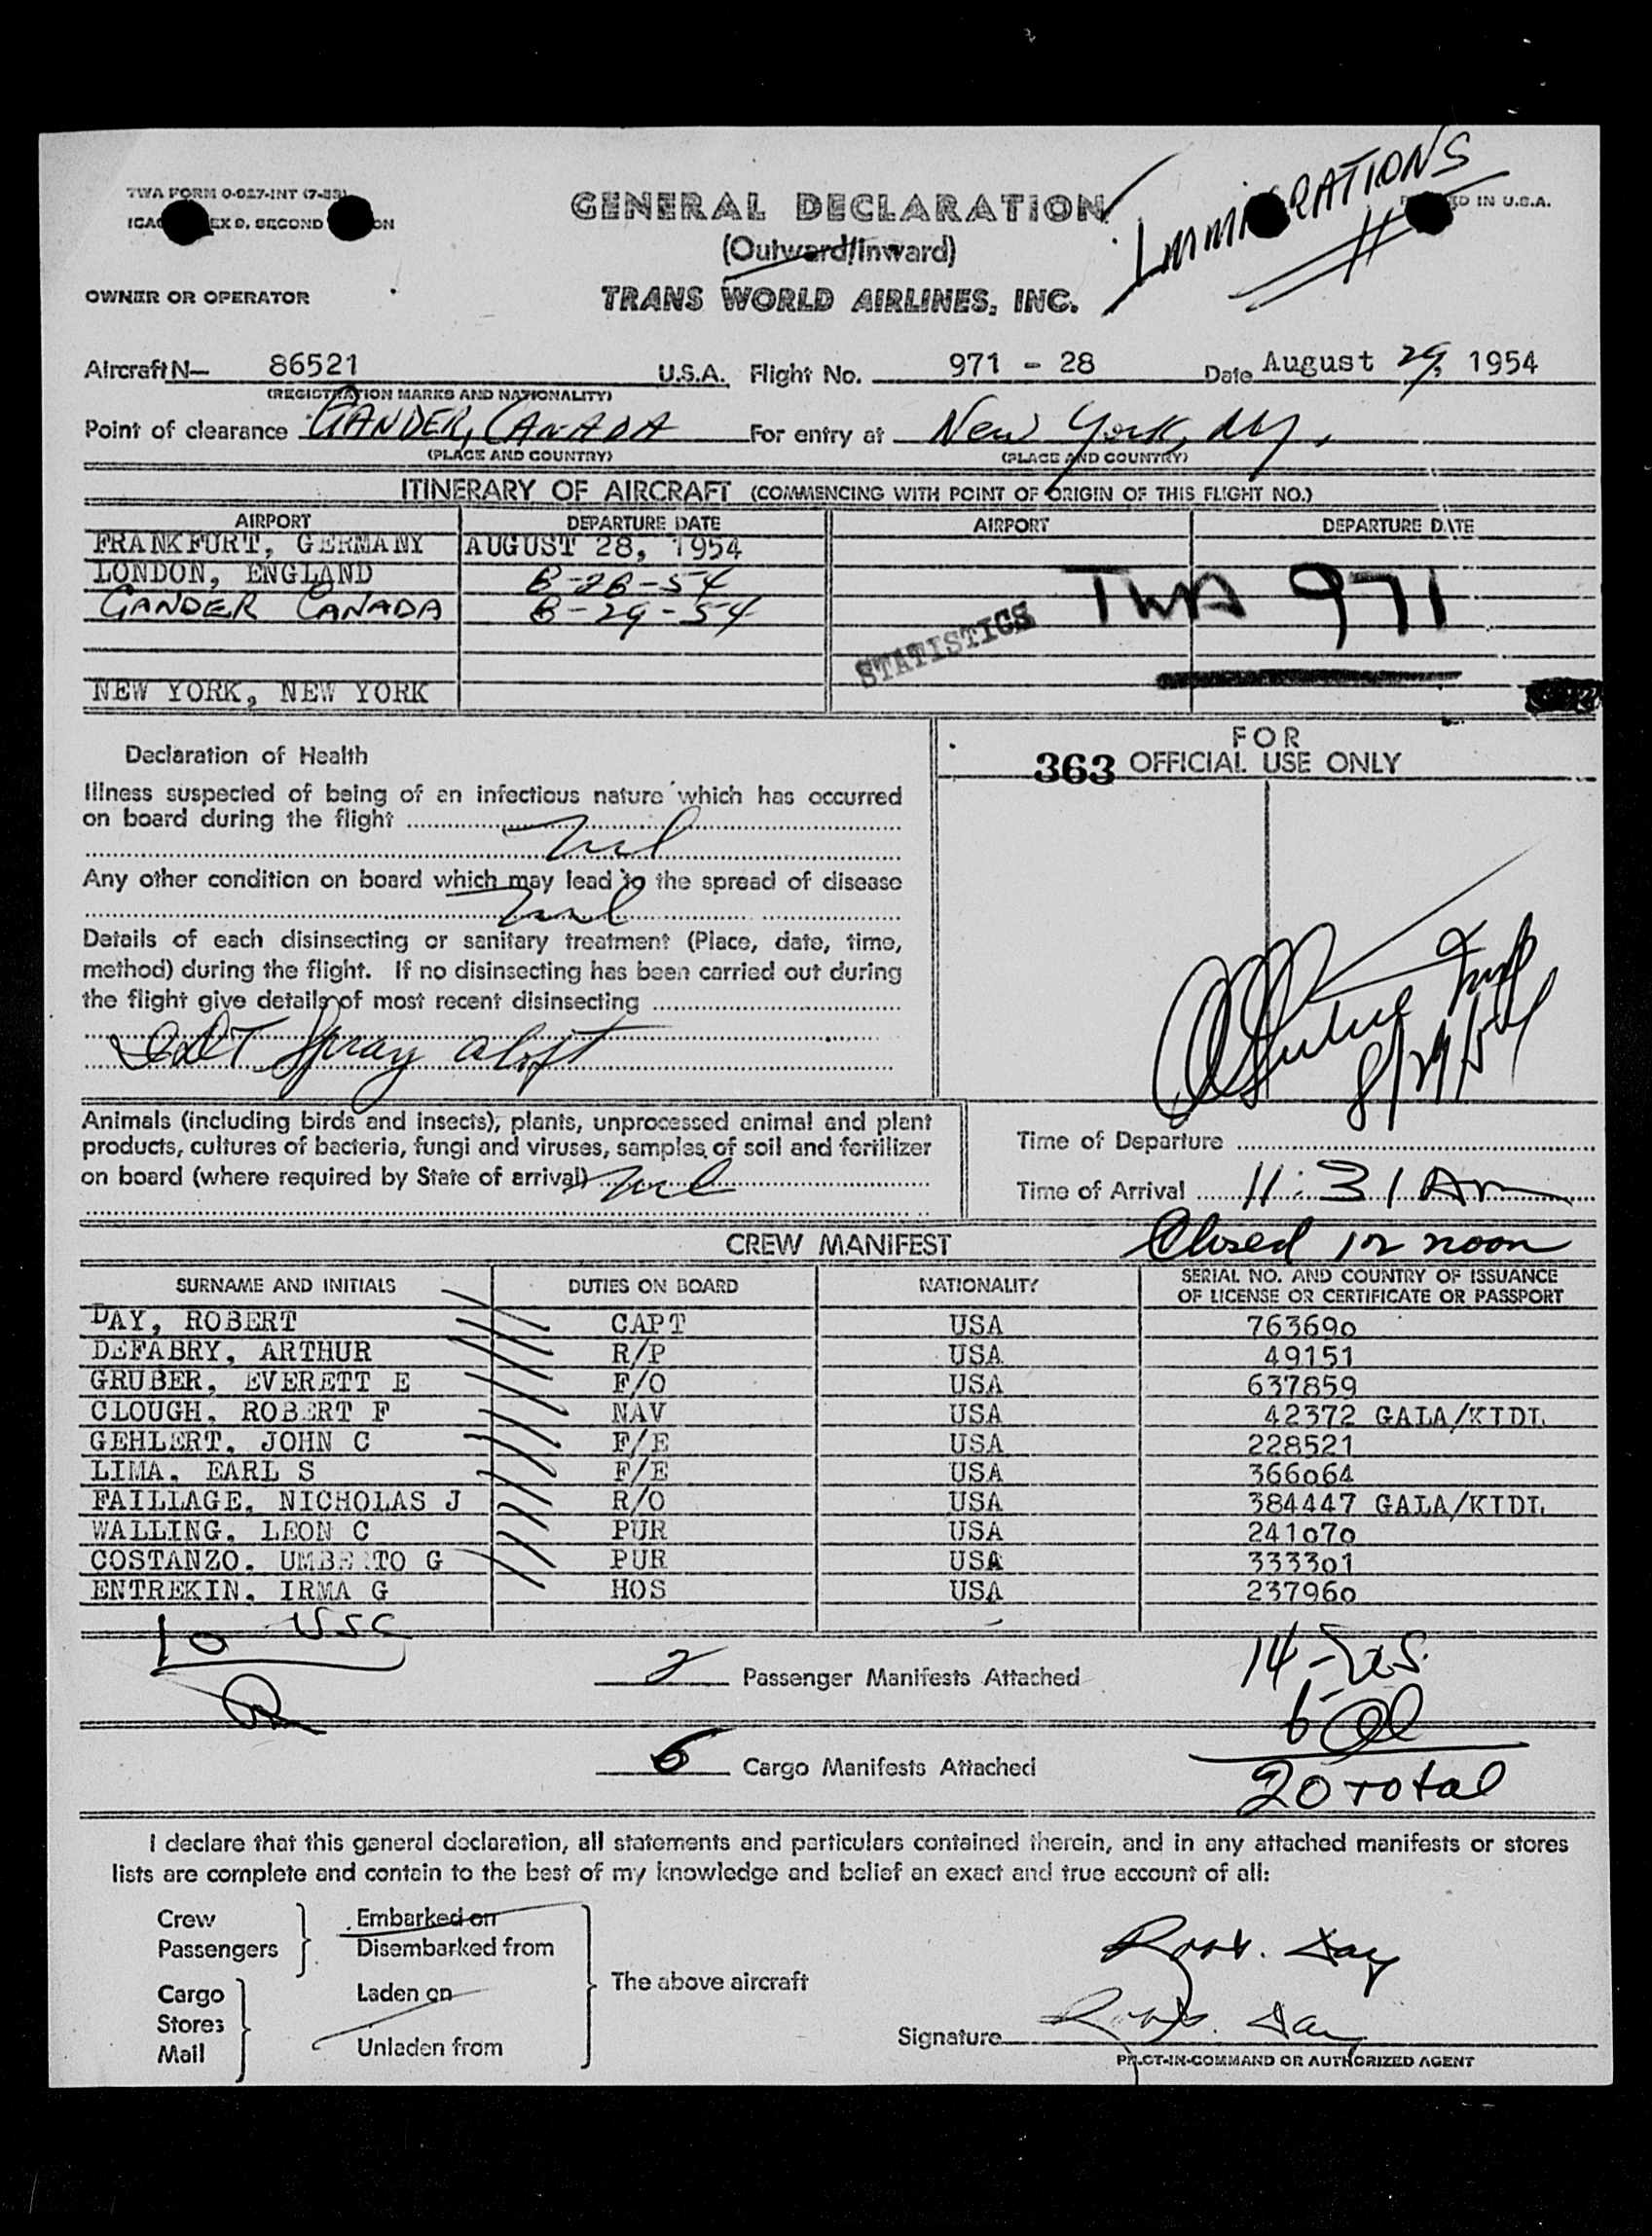 TWA FORM 0-027-INT
GENERAL DECLARATION
IMMIGRATIONS
IN U.S.A.
(Outward/Inward)
OWNER OR OPERATOR
TRANS WORLD AIRLINES, INC.
Aircraft N— 86521 U.S.A. Flight No. 971 - 28 Date August 29, 1954
(REGISTRATION MARKS AND NATIONALITY)
Point of clearance GANDER, CANADA For entry at New York, NY.
(PLACE AND COUNTRY) (PLACE AND COUNTRY)
ITINERARY OF AIRCRAFT (COMMENCING WITH POINT OF ORIGIN OF THIS FLIGHT NO.)
AIRPORT DEPARTURE DATE AIRPORT DEPARTURE DATE
FRANKFURT, GERMANY AUGUST 28, 1954
LONDON, ENGLAND 8-28-54
GANDER CANADA 8-29-54
TWA 971
STATISTICS
NEW YORK, NEW YORK
FOR
363 OFFICIAL USE ONLY
Declaration of Health
Illness suspected of being of an infectious nature which has occurred
on board during the flight
Nil
Any other condition on board which may lead to the spread of disease
Nil
Details of each disinsecting or sanitary treatment (Place, date, time,
method) during the flight. If no disinsecting has been carried out during
the flight give details of most recent disinsecting
Spray aloft
8/29/54
Animals (including birds and insects), plants, unprocessed animal and plant
products, cultures of bacteria, fungi and viruses, samples of soil and fertilizer
on board (where required by State of arrival) Nil
Time of Departure
Time of Arrival 11:31 AM
Closed 12 noon
CREW MANIFEST
SURNAME AND INITIALS DUTIES ON BOARD NATIONALITY SERIAL NO. AND COUNTRY OF ISSUANCE
OF LICENSE OR CERTIFICATE OR PASSPORT
DAY, ROBERT CAPT USA 763690
DEFABRY, ARTHUR R/P USA 49151
GRUBER, EVERETT E F/O USA 637859
CLOUGH, ROBERT F NAV USA 42372 GALA/KIDL
GEHLERT, JOHN C F/E USA 228521
LIMA, EARL S F/E USA 366064
FAILLAGE, NICHOLAS J R/O USA 384447 GALA/KIDL
WALLING, LEON C PUR USA 241070
COSTANZO, UMBERTO G PUR USA 333301
ENTREKIN, IRMA G HOS USA 237960
10 USC
2 Passenger Manifests Attached
14-
6
6 Cargo Manifests Attached
20 total
I declare that this general declaration, all statements and particulars contained therein, and in any attached manifests or stores
lists are complete and contain to the best of my knowledge and belief an exact and true account of all:
Crew Embarked on
Passengers Disembarked from
Cargo Laden on
Stores
Mail Unladen from
The above aircraft
Robt. Day
Signature Robt. Day
PILOT-IN-COMMAND OR AUTHORIZED AGENT